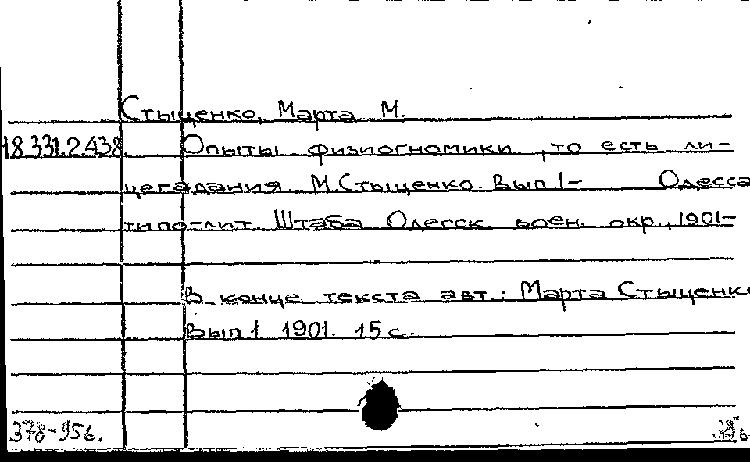 Стыценко, Марта М.
18.331.2.438. Опыты физиогномики, то есть ли-
цегадания М. Стыценко. Вып. 1- Одесса
типо-лит. Штаба Одесск. воен. окр., 1901-
В конце текста авт.: Марта Стыценко
Вып. 1 1901. 15 с.
378-956.